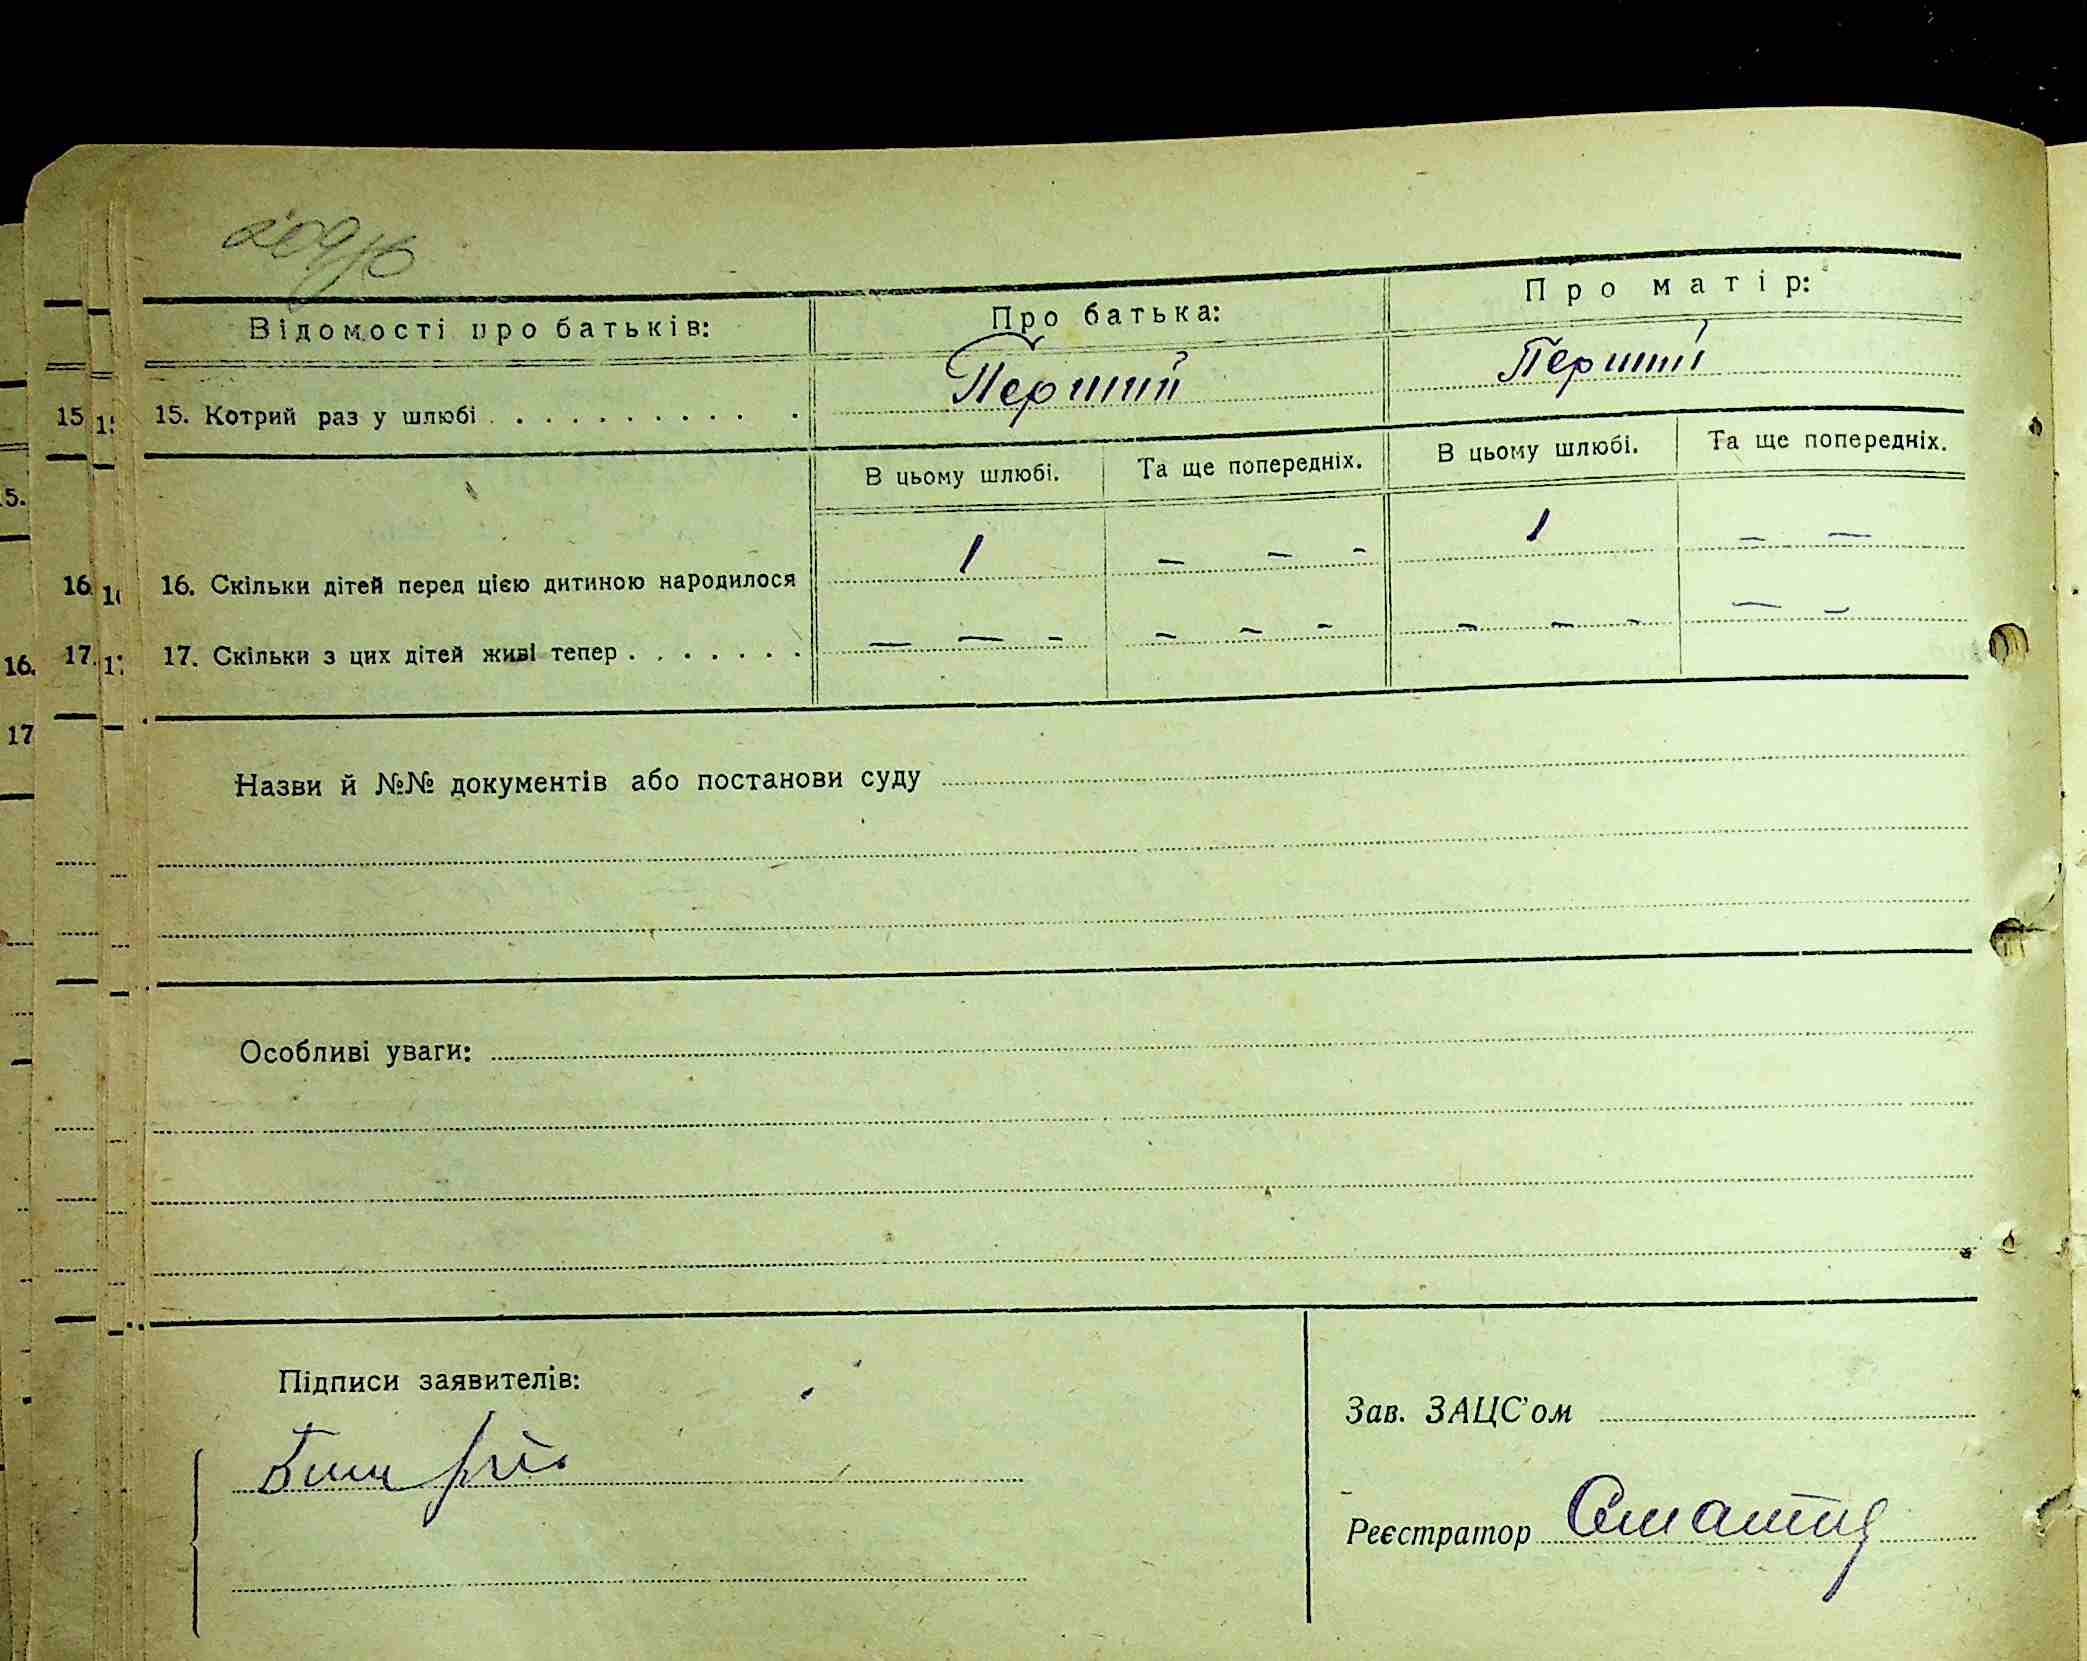 Відомості про батьків:
Про батька:
Про матір:
15. Котрий раз у шлюбі . . . . . . . . . . .
Перший
Перший
В цьому шлюбі.
Та ще попередніх.
В цьому шлюбі.
Та ще попередніх.
16. Скільки дітей перед цією дитиною народилося
1
— — —
1
— —
17. Скільки з цих дітей живі тепер . . . . . . .
— — —
— — —
— — —
— —
Назви й №№ документів або постанови суду
Особливі уваги:
Підписи заявителів:
Зав. ЗАЦС'ом
Реєстратор
15
15.
16
16.
17.
17